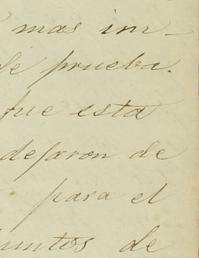 mas im-
de prueba.
que esta
dejaron de
para el
puntos de